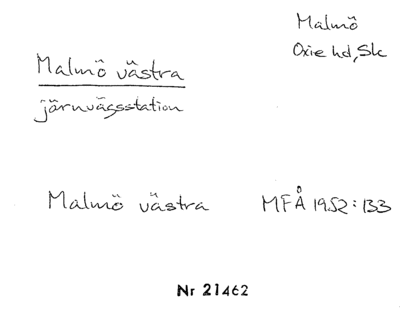 Malmö
Oxie hd, Sk
Malmö västra
järnvägsstation
Malmö västra MFÅ 1952:133
Nr 21462